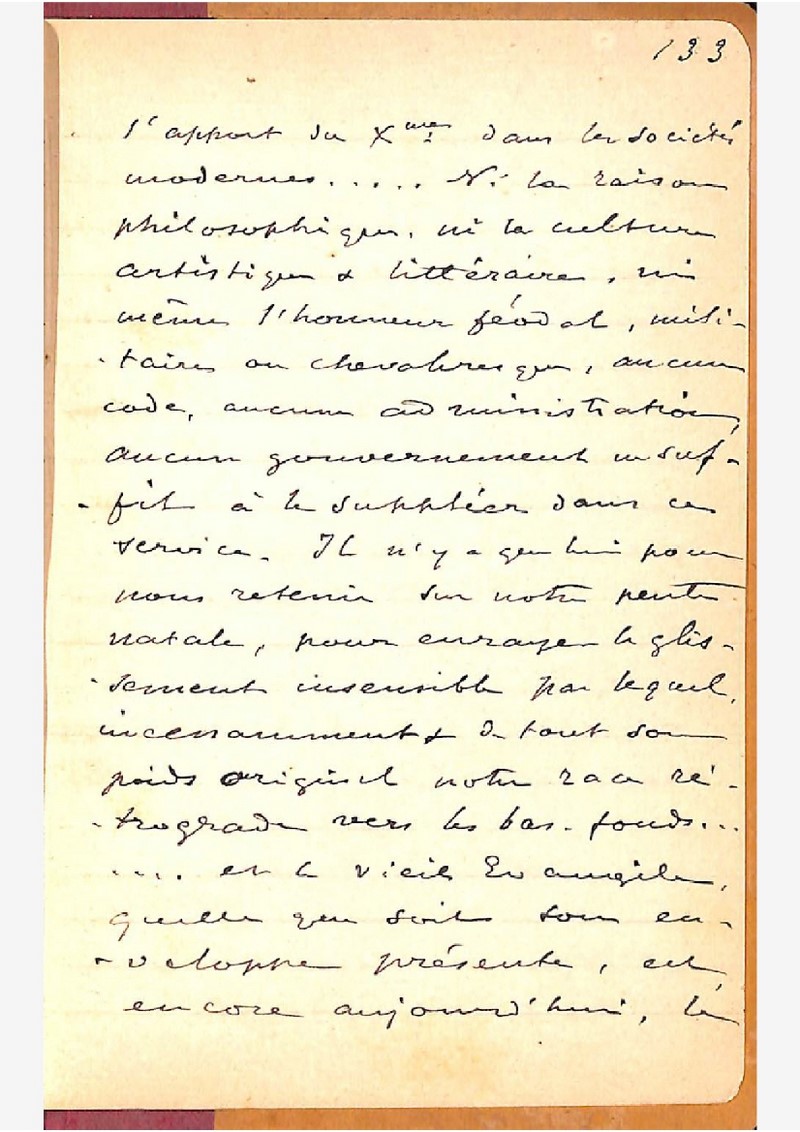 133
l'apport du Xme dans les sociétés
modernes..... Ni la raison
philosophique, ni la culture
artistique & littéraire, ni
même l'honneur féodal, mili-
-taire ou chevaleresque, aucun
code, aucune administration,
aucun gouvernement ne suf-
-fit à le suppléer dans ce
service. Il n'y a que lui pour
nous retenir sur notre pente
natale, pour enrayer le glis-
-sement insensible par lequel,
incessamment & de tout son
poids originel notre race ré-
-trograde vers les bas-fonds...
.... et le vieil Evangile,
quelle que soit son en-
-veloppe présente, est,
encore aujourd'hui, le